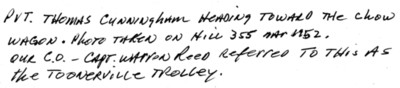 PVT. THOMAS CUNNINGHAM HEADING TOWARD THE CHOW
WAGON. PHOTO TAKEN ON HILL 355 MAR 1952.
OUR C.O. - CAPT. WARREN REED REFERRED TO THIS AS
the TOONERVILLE TROLLEY.